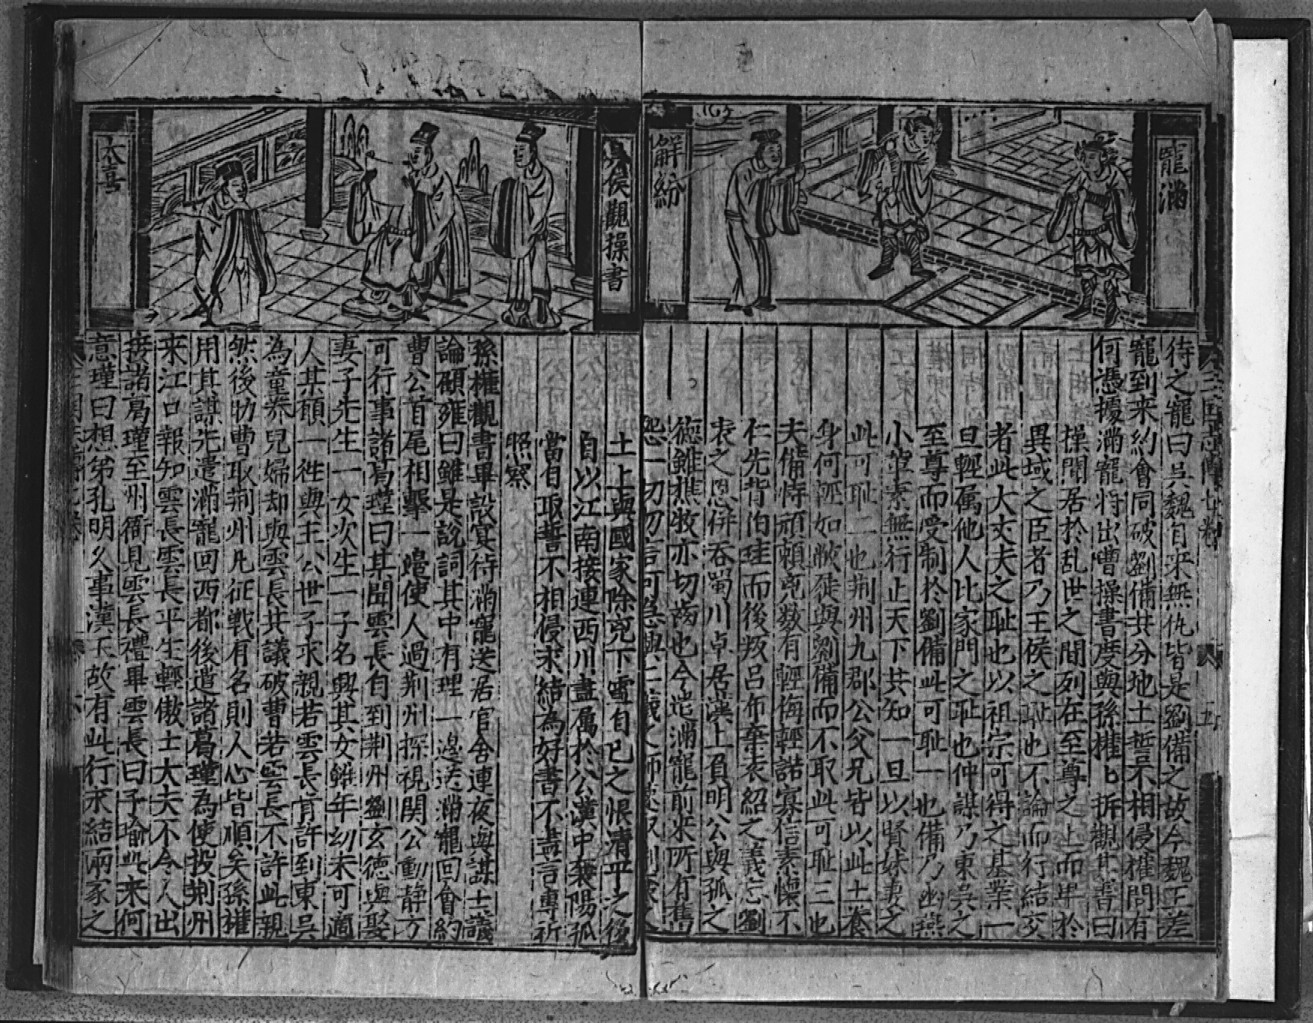 寵滿
解紛
待之寵曰吳魏自来無仇皆是劉備之故今魏王差
寵到来約會同破劉備共分地土誓不相侵權問有
何憑據滿寵將出曹操書度與孫權匕拆觀其書曰
操聞居於乱世之間列在至尊之上而卑於
異域之臣者乃王侯之耻也不論而行結交
者此大丈夫之耻也以祖宗可得之基業一
旦輕属他人比家門之耻也仲謀乃東吳之
至尊而受制於劉備此可耻一也備乃幽燕
小輩素無行止天下共知一旦以賢妹妻之
此可耻二也荆州九郡公父兄皆以此土養
身何
如敝徒與劉備而不取此可耻三也
夫備恃頑頼兇数有輕侮輕諾寡信素懷不
仁先背伯珪而後叛吕布棄袁紹之義忘劉
表之恩併吞蜀川卓居漢上負明公與孤之
德雖樵牧亦切齒也今差滿寵前来所有舊
怨一切勿言可急興仁義之師
侯觀操書
大喜
土上與國家除兇下雪自己之恨清平之後
自以江南接連西川盡属於公漢中襄陽孤
當自取誓不相侵求結為好書不盡言專祈
照察
孫權觀書畢設宴待滿寵送居官舍連夜與謀士議
論顧雍曰雖是說詞其中有理一邊送滿寵回會約
曹公首尾相擊一邊使人過荆州探視関公動静方
可行事諸葛瑾曰某聞雲長自到荆州劉玄德與娶
妻子先生一女次生一子名興其女雖年幼未可適
人某願一徃與主公世子求親若雲長肯許到東吳
為童養兒婦却與雲長共議破曹若雲長不許此親
然後助曹取荆州凡征戰有名則人心皆順矣孫權
用其謀先遣滿寵回西都後遣諸葛瑾為使投荆州
来江口報知雲長雲長平生輕傲士大夫不令人出
接諸葛瑾至州衙見雲長禮畢雲長曰子瑜此来何
意瑾曰想弟孔明久事漢王故有此行求結兩家之